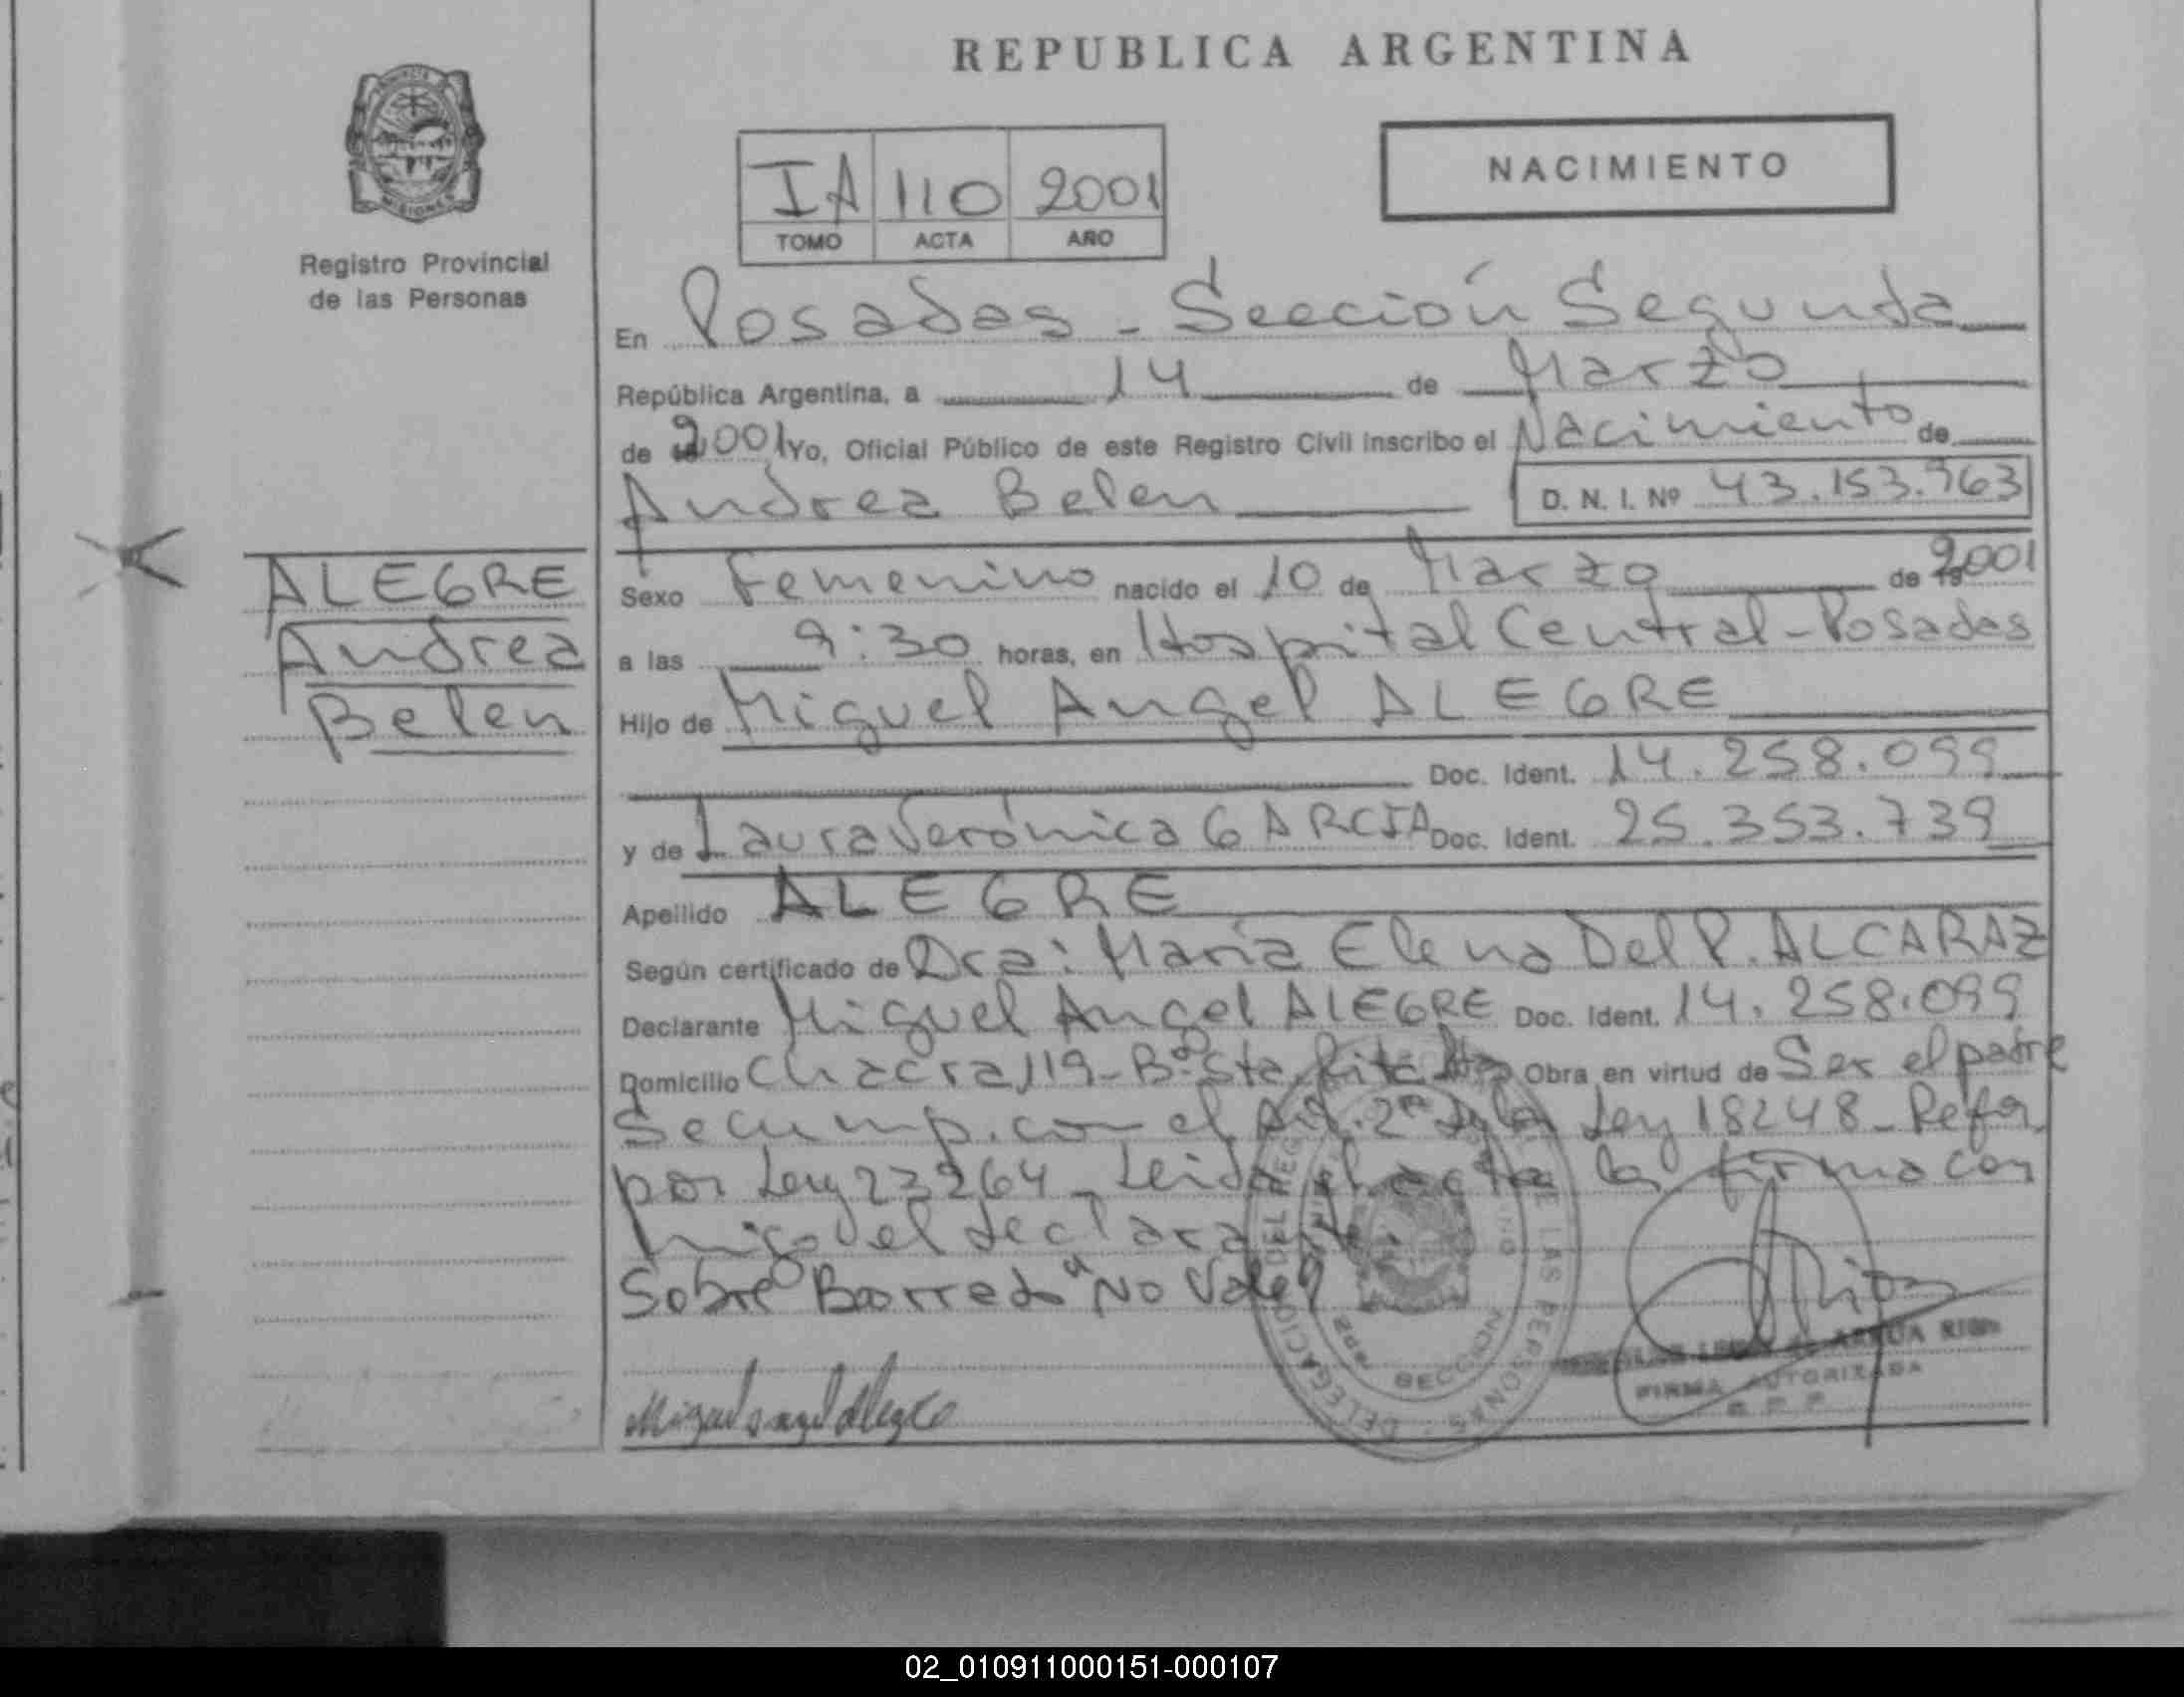 REPUBLICA ARGENTINA
PROVINCIA
MISIONES
Registro Provincial
de las Personas
IA 110 2001
TOMO ACTA AÑO
NACIMIENTO
En Posadas - Sección Segunda
República Argentina, a 14 de Marzo
de 2001 Yo, Oficial Público de este Registro Civil inscribo el Nacimiento de
Andrea Belen D. N. I. Nº 43.153.963
ALEGRE
Andrea
Belen
Sexo Femenino nacido el 10 de Marzo de 2001
a las 9:30 horas, en Hospital Central - Posadas
Hijo de Miguel Angel ALEGRE
Doc. Ident. 14.258.099
y de Laura Verónica GARCIA Doc. Ident. 25.353.739
Apellido ALEGRE
Según certificado de Dra: María Elena Del P. ALCARAZ
Declarante Miguel Angel ALEGRE Doc. Ident. 14.258.099
Domicilio Chacra 119 - Bº Sta. Rita Obra en virtud de Ser el padre
Se cump. con el Art. 2º de la Ley 18248 - Refor
por Ley 23264 - Leida el acta la firma con
migo el declarante.
Sobre Borrado "No Vale"
DELEGACION DEL REG LAS PERSONAS
SECCION
Miguel angel Alegre
FIRMA AUTORIZADA
02_010911000151-000107